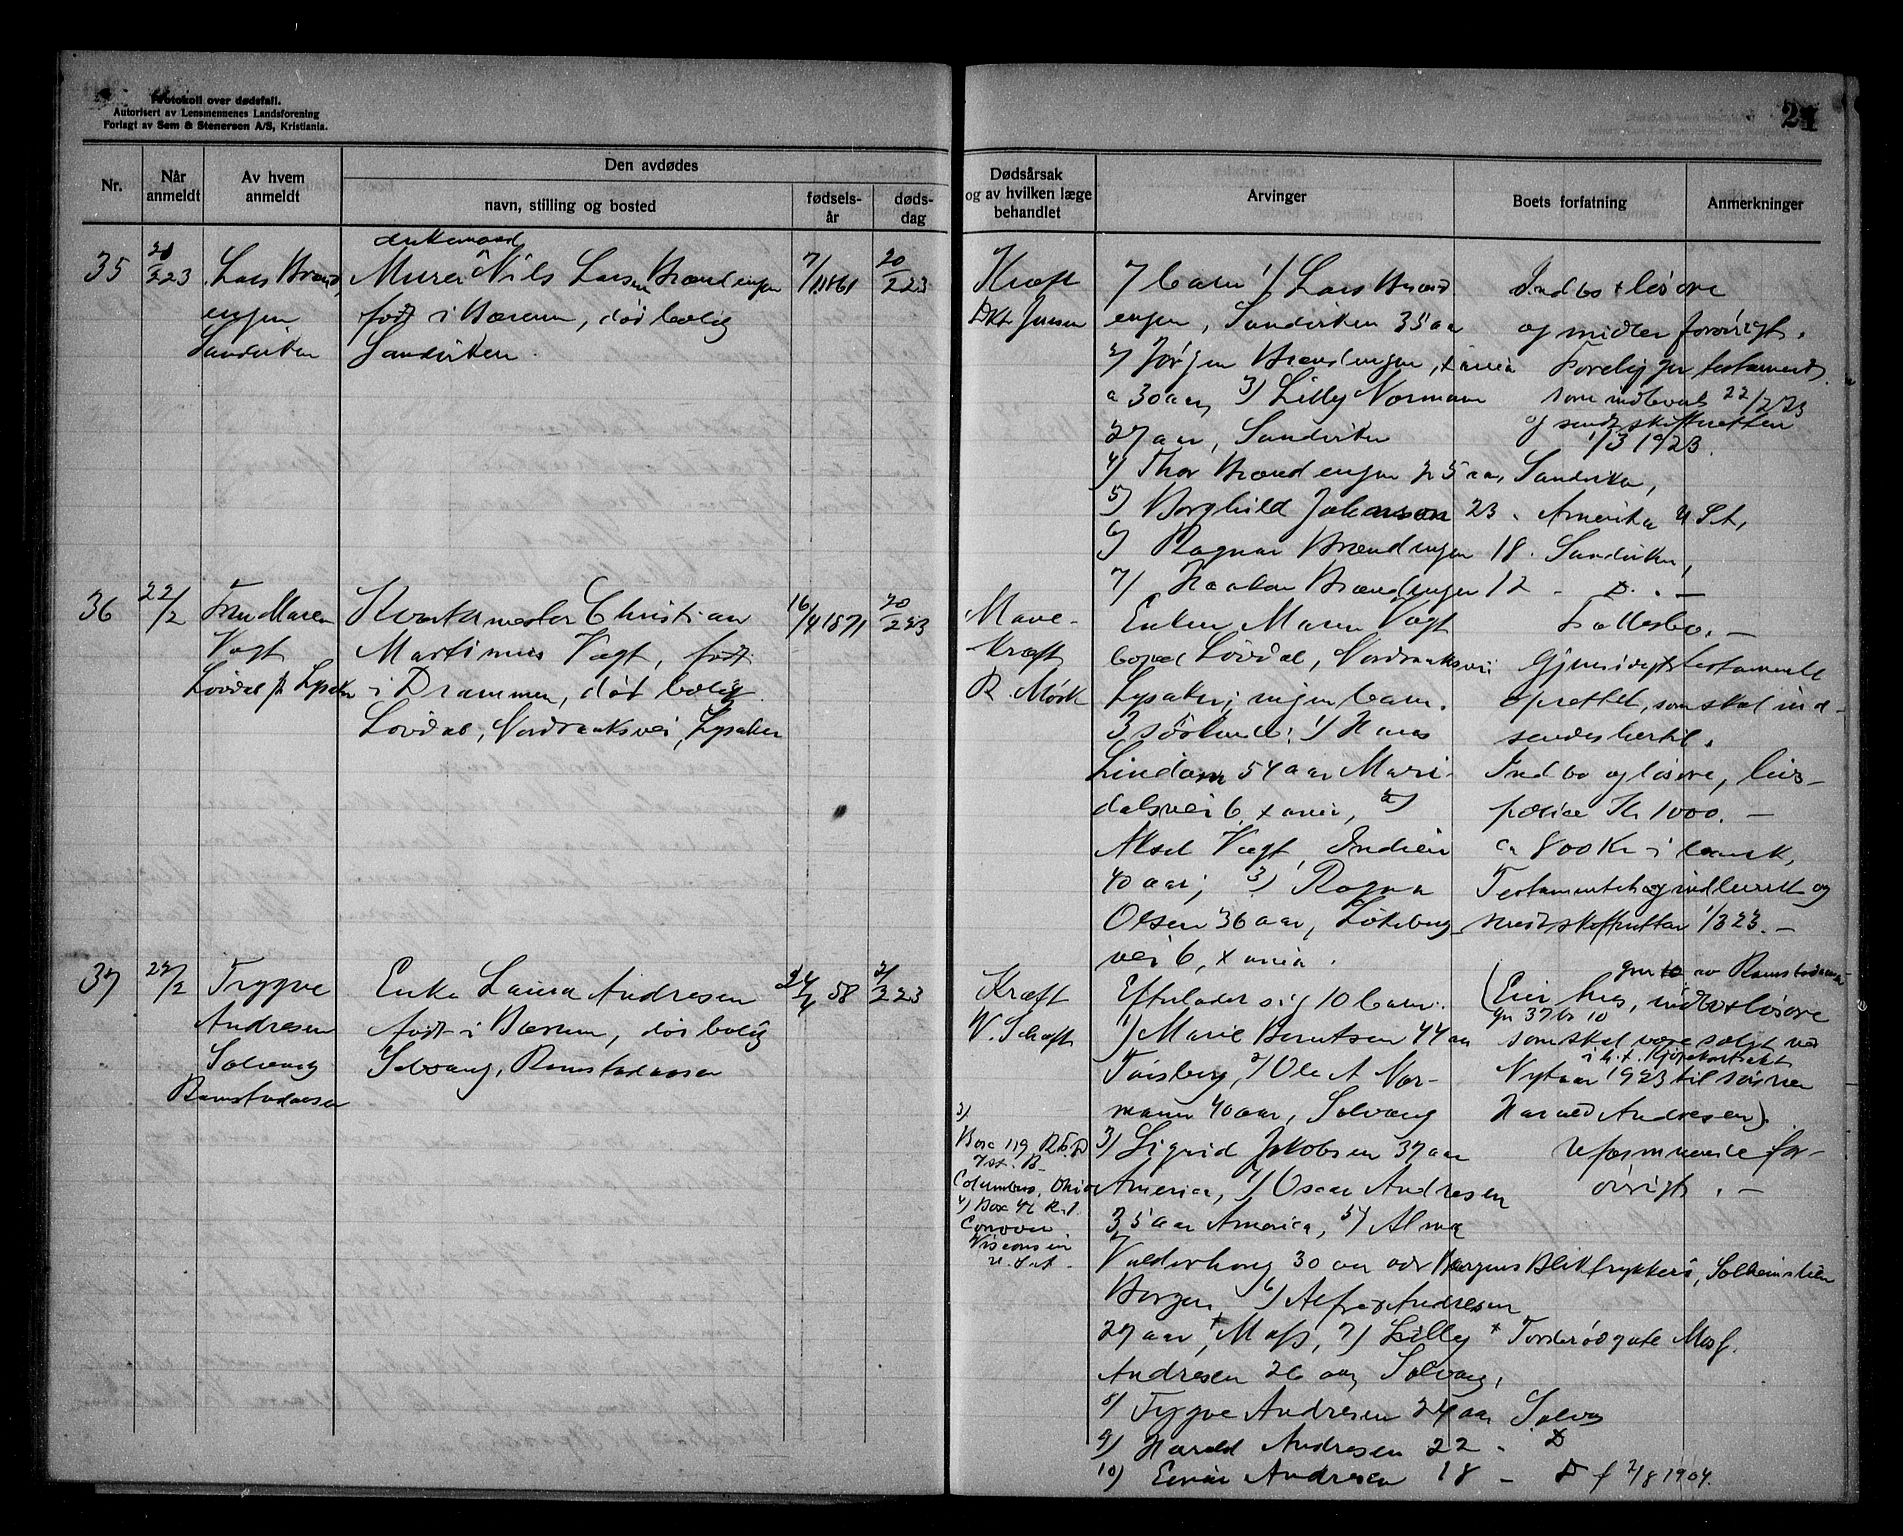 Protokoll over dødsfall.
Autorisert av Lensmennenes Landsforening
Forlagt av Sem & Stenersen A/S, Kristiania.
21
Nr.
Når anmeldt
Av hvem anmeldt
Den avdødes
navn, stilling og bosted
fødsels-år
døds-dag
Dødsårsak og av hvilken læge behandlet
Arvinger
Boets forfatning
Anmerkninger
35
20/2 23
Lars Brænd
engen
Sandviken
enkemand
Murer Nils Larsen Brændengen
født i Bærum, død bolig
Sandviken
7/11 1861
20/2 23
Kræft
Dr. Jensen
7 barn 1) Lars Brænd
engen, Sandviken 35 aar
2) Jørgen Brændengen, Xania
30 aar, 3) Lilly Normann
27 aar, Sandviken
4) Thor Brændengen 25 aar, Sandviken,
5) Borghild Johanson 23 - Amerika U St,
6) Ragnar Brændengen 18 - Sandviken,
7) Haakon Brændengen 12 - D. -
Indbo + løsøre
og midler forøvrigt.
Foreligger testament
som indlevert 22/2 23
og sendt skifteretten
1/3 1923.
36
22/2
Fru Maren
Vogt
Løvdal pr Lysaker
Christian
Martinius Vogt, født
i Drammen, død bolig
Løvdal, Nordraaksvei, Lysaker
16/4 1871
20/2 23
Mave-
kræft
R. Mørk
Enken Maren Vogt
boped Løvdal, Nordraaksvei
Lysaker; ingen barn.
3 søskende: 1) Hans
54 aar Mari-
dalsvei 6 Xania, 2)
Aksel Vogt, Indien
40 aar; 3) Ragna
Olsen 36 aar, Løkeberg-
vei 6, Xania.
Fællesbo. -
Gjensidigt testamente
oprettet, som skal ind-
sendes hertil.
Indbo og løsøre, livs-
police Kr 1000. -
ca 800 Kr i bank,
Testamentet og indlevert og
sendt skifteretten 1/3 23. -
37
27/2
Trygve
Andresen
Solvang
Ramstadaasen
Enke Laura Andresen
født i Bærum, død bolig
Solvang, Ramstadaasen
24/4 58
2/2 23
Kræft
W. Schaft
Efterlader sig 10 barn:
1) Marie Berntsen 44 aar
Tønsberg, 2) Ole A Nor-
mann 40 aar, Solvang
3) Sigrid Jakobsen 37 aar
America, 4) Oscar Andresen
35 aar America, 5) Alma
Valderhaug 30 aar adr Bergens Bliktrykkeri, Solheimslien
Bergen, 6) Alfred Andresen
29 aar, Moss, 7) Lilly x Torderødgate Moss.
Andresen 26 aar, Solvang,
8) Trygve Andresen 24 aar Solvang
9) Harald Andresen 22 - D
10) Einar Andresen 18 - D f 2/8 1904.
3)
Box 119 R.F.D
Columbus, Ohio
4) Box 46 R.1.
Conover
Wisconsin
U.S.A -
av Ramstadaasen
(Eier hus, indbo + løsøre
gn 37 br 10
som skal være solgt ved
i h.t. kjøpekontrakt
Nytaar 1923 til sønnen
Harald Andresen)
uformuende for-
øvrigt. -